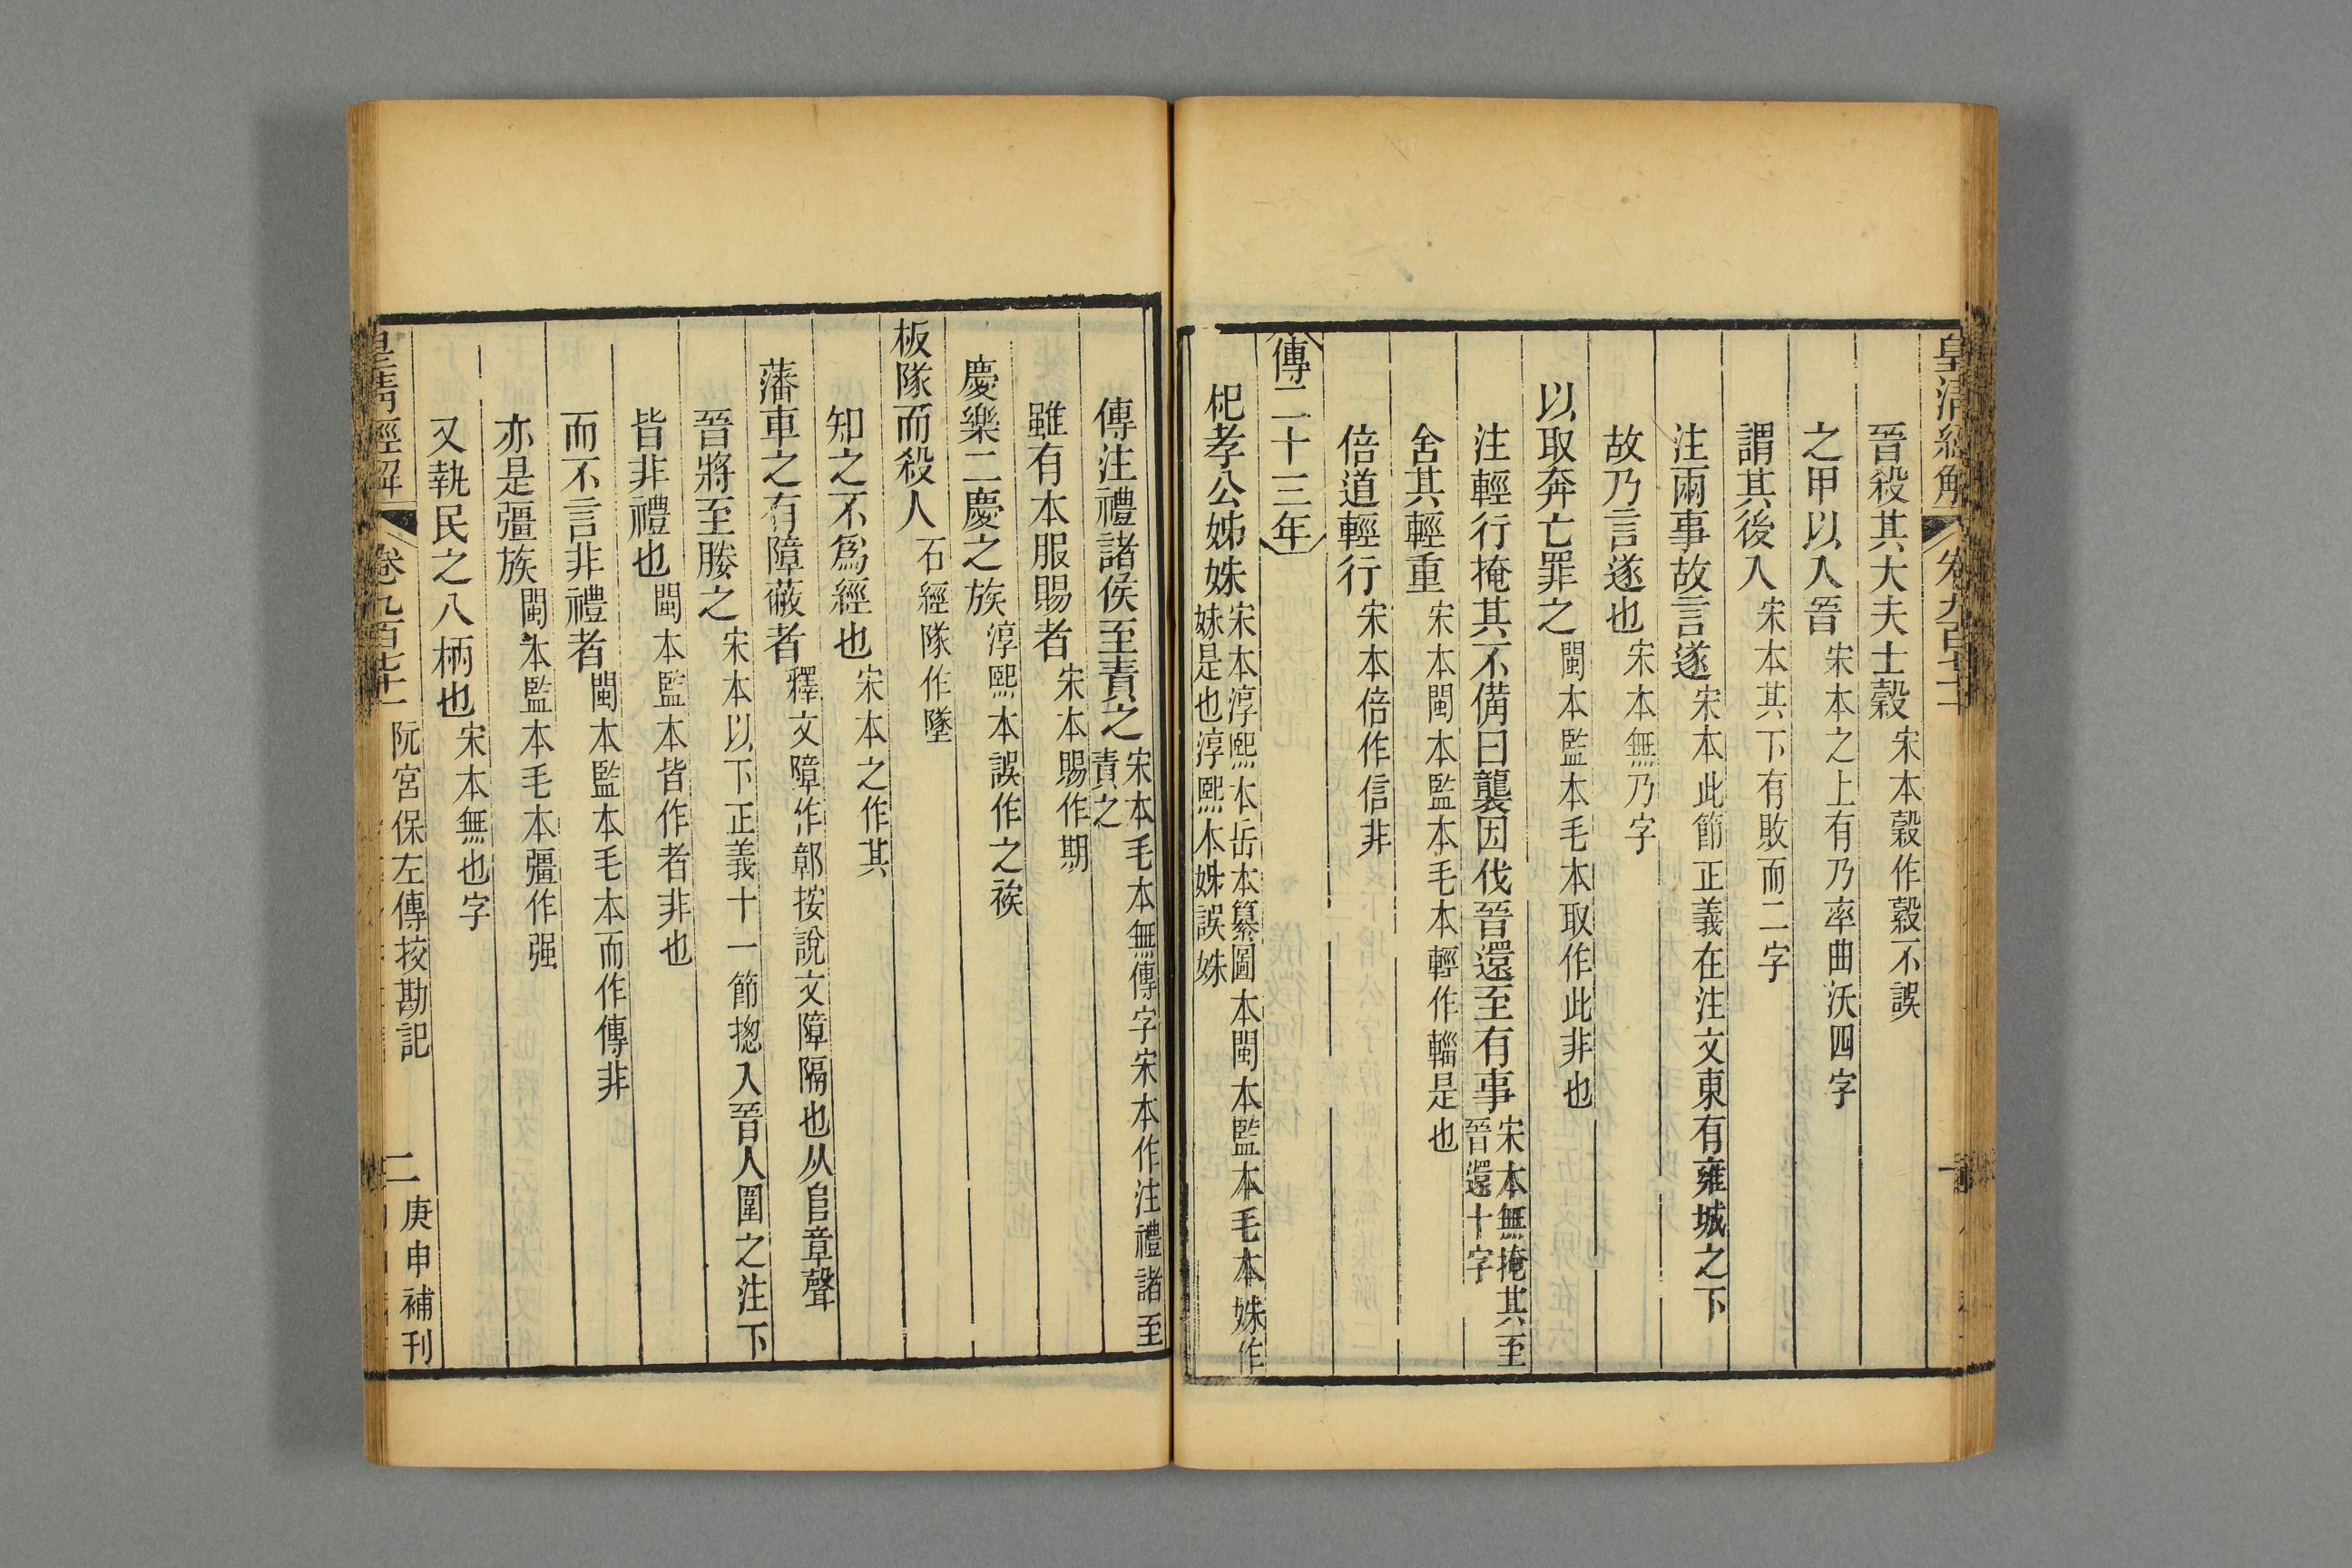 皇清經解 卷九百七十一
晉殺其大夫士縠 宋本縠作穀不誤
之甲以入晉 宋本之上有乃率曲沃四字
謂其後入 宋本其下有敗而二字
注兩事故言遂 宋本此節正義在注文東有雍城之下
故乃言遂也 宋本無乃字
以取奔亡罪之 閩本監本毛本取作此非也
注輕行掩其不備曰襲因伐晉還至有事 宋本無掩其至晉還十字
舍其輕重 宋本閩本監本毛本輕作輜是也
倍道輕行 宋本倍作信非
傳二十三年
杞孝公姊姝 宋本淳熙本岳本纂圖本閩本監本毛本姝作妹是也淳熙本姊誤姝
傳注禮諸侯至責之 宋本毛本無傳字宋本作注禮諸至責之
雖有本服賜者 宋本賜作期
慶樂二慶之族 淳熙本誤作之祾
板隊而殺人 石經隊作墜
知之不爲經也 宋本之作其
藩車之有障蔽者 釋文障作鄣按說文障隔也从𨸏章聲
晉將至媵之 宋本以下正義十一節揔入晉人圍之注下
皆非禮也 閩本監本皆作者非也
而不言非禮者 閩本監本毛本而作傳非
亦是彊族 閩本監本毛本彊作强
又執民之八柄也 宋本無也字
皇清經解 卷九百七十一 阮宮保左傳挍勘記 二 庚申補刊